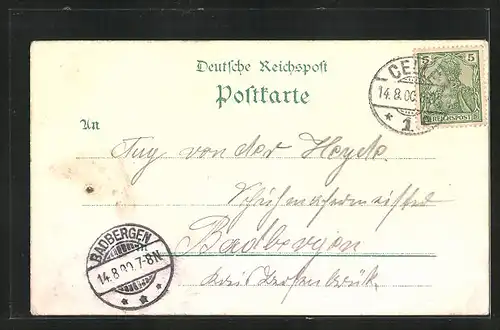 Deutsche Reichspost
Postkarte
CELLE
14.8.00.
* 1
5 5
REICHSPOST
An
von der Heyde
Schuhmachermeister
Badbergen
BADBERGEN
14.8.00.7-8N.
* * *